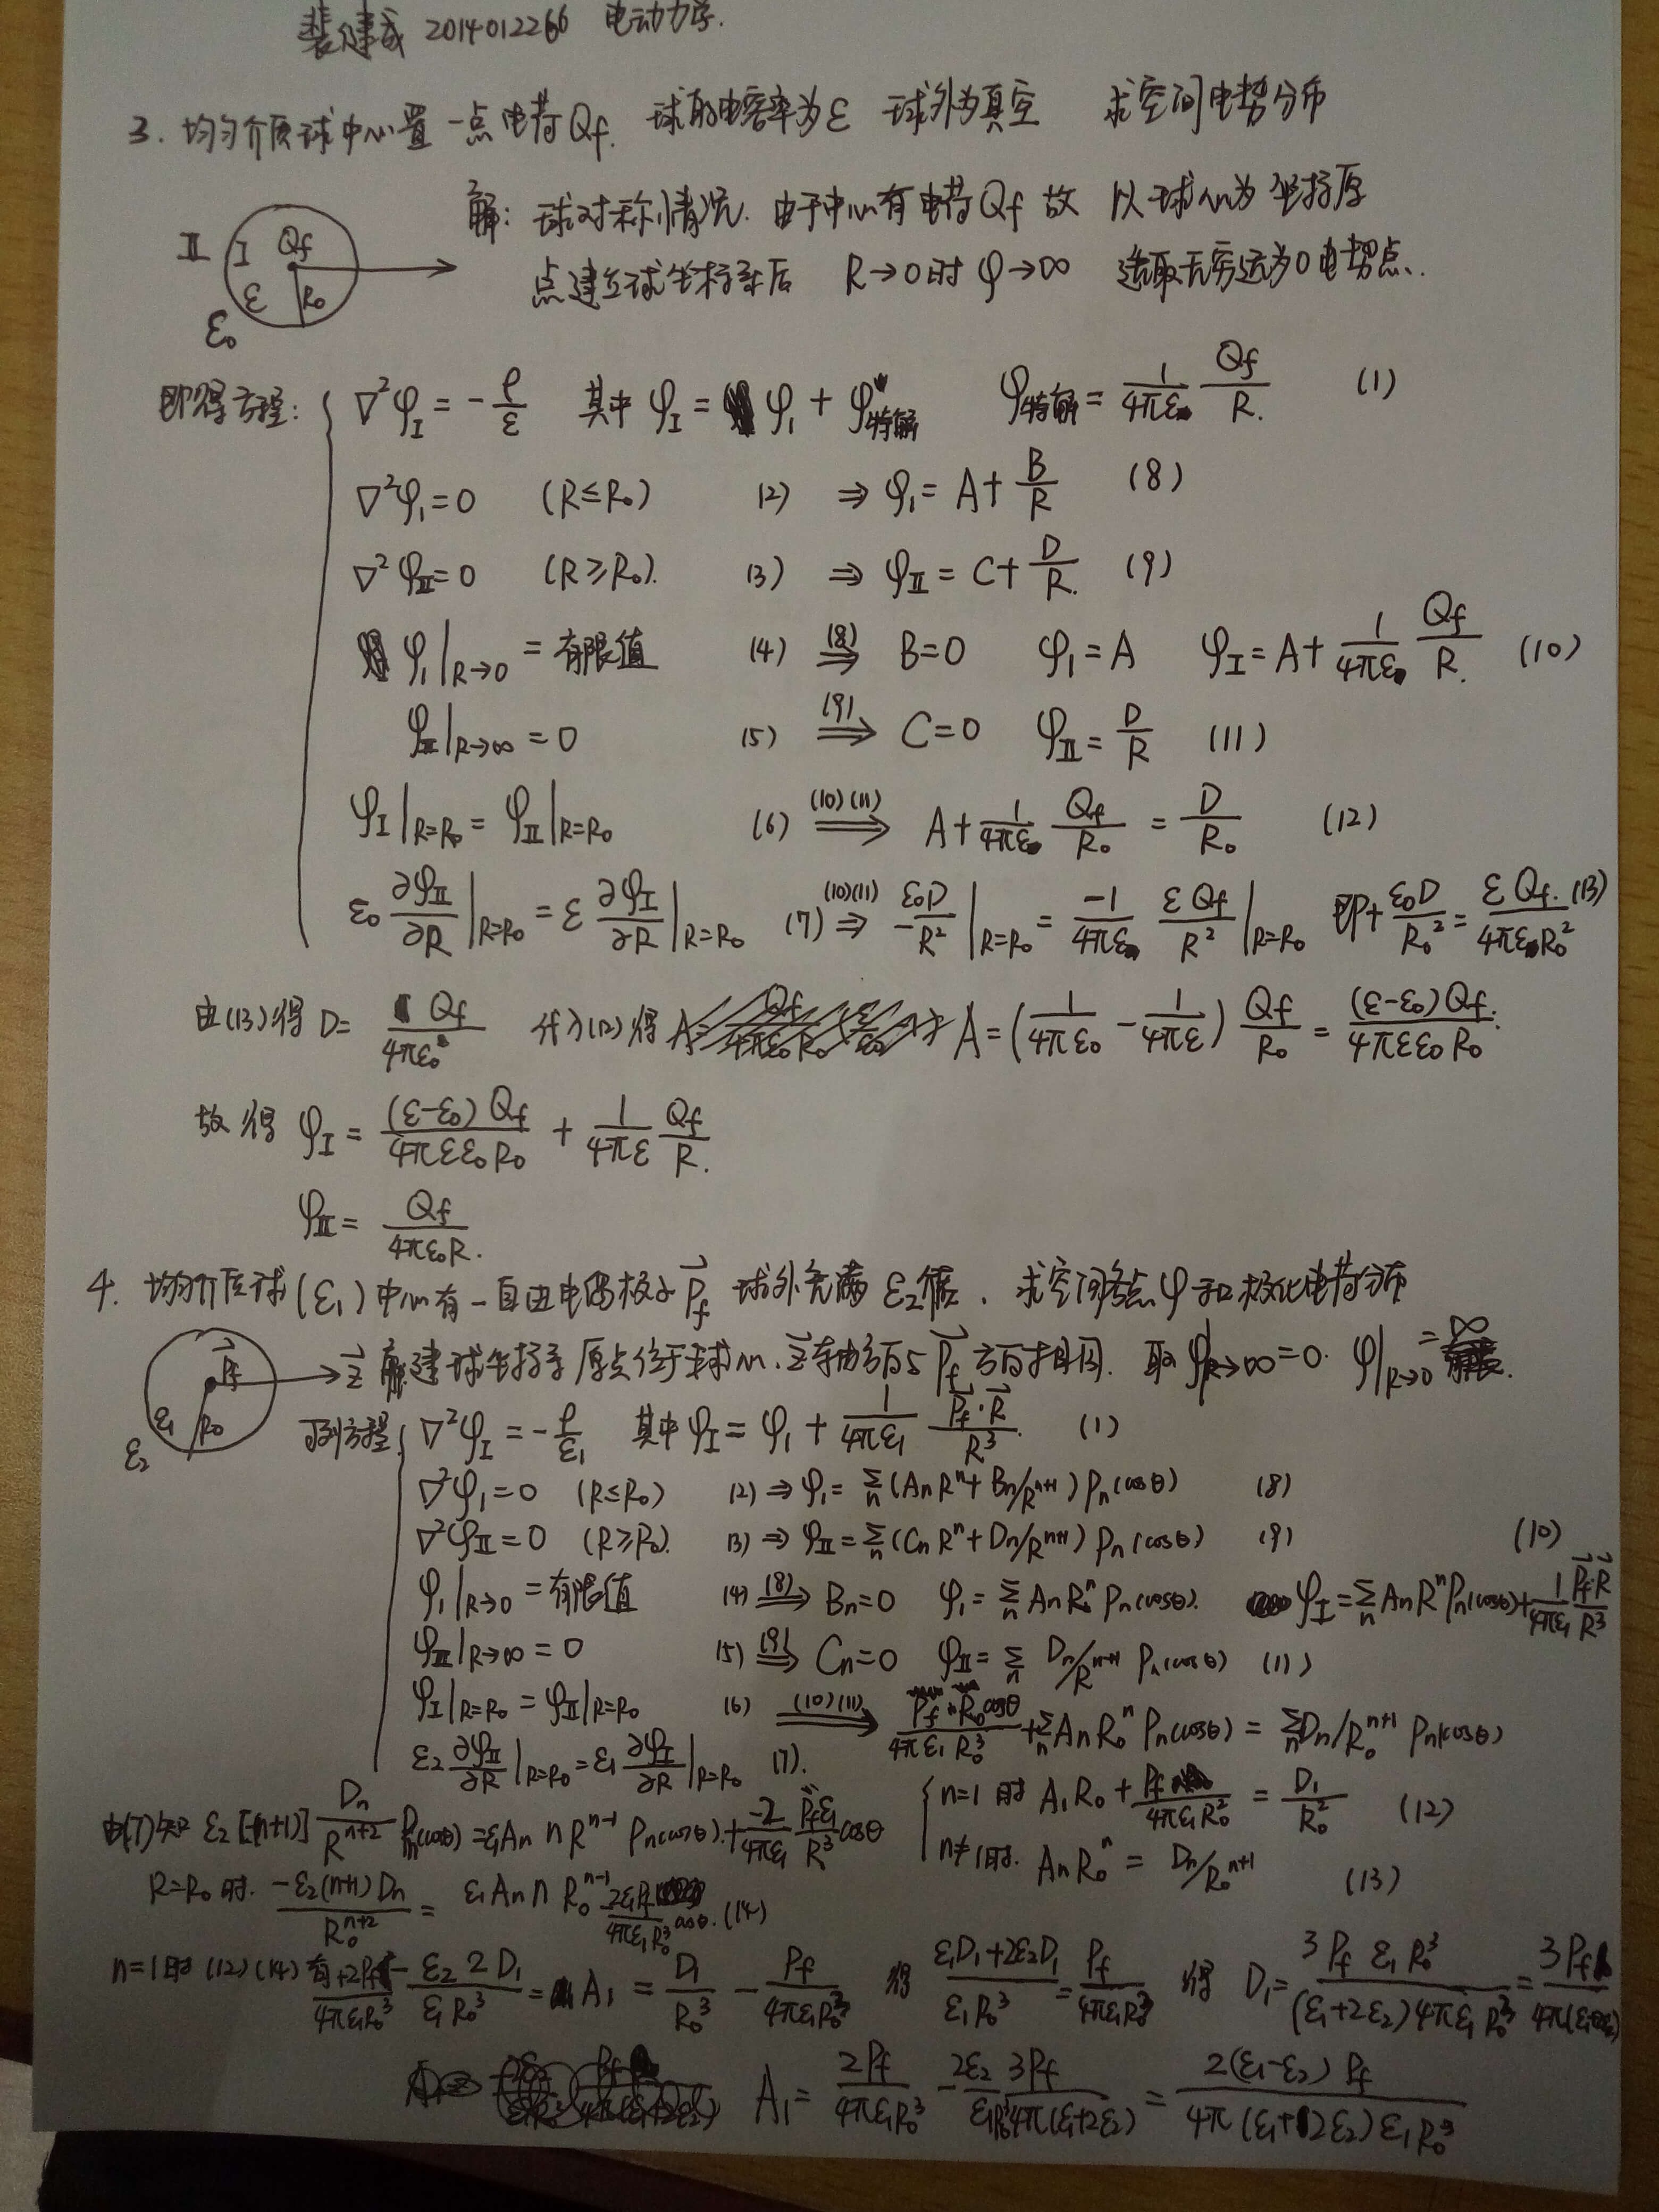 裴健成 2014012266 电动力学.
3. 均匀介质球中心置一点电荷Qf. 球的电容率为ε 球外为真空 求空间电势分布
解: 球对称情况. 由于中心有电荷Qf 故 以球心为坐标原
Ⅱ Ⅰ Qf ε R₀ ε₀
点建立球坐标系后 R→0时 φ→∞ 选取无穷远为0电势点.
即得方程: { ∇²φ_Ⅰ = -ρ/ε 其中 φ_Ⅰ = φ₁ + φ特解 φ特解 = 1/(4πε) Qf/R. (1)
∇²φ₁=0 (R≤R₀) (2) ⇒ φ₁ = A + B/R (8)
∇²φ_Ⅱ=0 (R≥R₀). (3) ⇒ φ_Ⅱ = C + D/R. (9)
φ₁|R→0 = 有限值 (4) (8)⇒ B=0 φ₁=A φ_Ⅰ=A+ 1/(4πε) Qf/R. (10)
φ_Ⅱ|R→∞ = 0 (5) (9)⇒ C=0 φ_Ⅱ = D/R (11)
φ_Ⅰ|R=R₀ = φ_Ⅱ|R=R₀ (6) (10)(11)⇒ A + 1/(4πε) Qf/R₀ = D/R₀ (12)
ε₀ ∂φ_Ⅱ/∂R |R=R₀ = ε ∂φ_Ⅰ/∂R |R=R₀ (7) (10)(11)⇒ -ε₀D/R² |R=R₀ = -1/(4πε) εQf/R² |R=R₀ 即+ ε₀D/R₀² = εQf./(4πεR₀²) (13)
由(13)得 D= Qf/(4πε₀) 代入(12)得 A=(1/(4πε₀) - 1/(4πε)) Qf/R₀ = (ε-ε₀)Qf/(4πεε₀R₀).
故得 φ_Ⅰ = (ε-ε₀)Qf/(4πεε₀R₀) + 1/(4πε) Qf/R.
φ_Ⅱ = Qf/(4πε₀R.)
4. 均匀介质球(ε₁)中心有一自由电偶极子 P⃗f 球外充满ε₂介质. 求空间各点φ和极化电荷分布
P⃗f ε₁ R₀ ε₂ → z⃗
解建球坐标系 原点位于球心. z⃗轴方向与P⃗f方向相同. 取φ|R→∞=0. φ|R→0 =∞.
可列方程 { ∇²φ_Ⅰ = -ρ/ε₁ 其中φ_Ⅰ = φ₁ + 1/(4πε₁) P⃗f·R⃗/R³. (1)
∇²φ₁=0 (R≤R₀) (2) ⇒ φ₁ = Σn (AnRⁿ + Bn/Rⁿ⁺¹) Pn(cosθ) (8)
∇²φ_Ⅱ=0 (R≥R₀). (3) ⇒ φ_Ⅱ = Σn (CnRⁿ + Dn/Rⁿ⁺¹) Pn(cosθ) (9)
φ₁|R→0 = 有限值 (4) (8)⇒ Bn=0 φ₁ = Σn AnRⁿ Pn(cosθ). φ_Ⅰ = Σn AnRⁿPn(cosθ) + 1/(4πε₁) P⃗f·R⃗/R³ (10)
φ_Ⅱ|R→∞ = 0 (5) (9)⇒ Cn=0 φ_Ⅱ = Σn Dn/Rⁿ⁺¹ Pn(cosθ) (11)
φ_Ⅰ|R=R₀ = φ_Ⅱ|R=R₀ (6) (10)(11)⇒ Pf·R₀cosθ/(4πε₁R₀³) + Σn AnR₀ⁿ Pn(cosθ) = Σn Dn/R₀ⁿ⁺¹ Pn(cosθ)
ε₂ ∂φ_Ⅱ/∂R |R=R₀ = ε₁ ∂φ_Ⅰ/∂R |R=R₀ (7).
{ n=1时 A₁R₀ + Pf/(4πε₁R₀²) = D₁/R₀² (12)
n≠1时. AnR₀ⁿ = Dn/R₀ⁿ⁺¹ (13)
由(7)知 ε₂[-(n+1)] Dn/Rⁿ⁺² Pn(cosθ) = ε₁An n Rⁿ⁻¹ Pn(cosθ). + -2/(4πε₁) Pfε₁/R³ cosθ
R=R₀时. -ε₂(n+1)Dn/R₀ⁿ⁺² = ε₁An n R₀ⁿ⁻¹ - 2ε₁Pf/(4πε₁R₀³) cosθ. (14)
n=1时 (12)(14)有 +2Pf/(4πε₁R₀³) - ε₂2D₁/(ε₁R₀³) = A₁ = D₁/R₀³ - Pf/(4πε₁R₀³) 得 (ε₁D₁+2ε₂D₁)/(ε₁R₀³) = 3Pf/(4πε₁R₀³) 得 D₁ = 3Pf ε₁R₀³/((ε₁+2ε₂)4πε₁R₀³) = 3Pf/(4π(ε₁+2ε₂))
A₁ = 2Pf/(4πε₁R₀³) - 2ε₂/(ε₁R₀³) 3Pf/(4π(ε₁+2ε₂)) = 2(ε₁-ε₂)Pf/(4π(ε₁+2ε₂)ε₁R₀³)